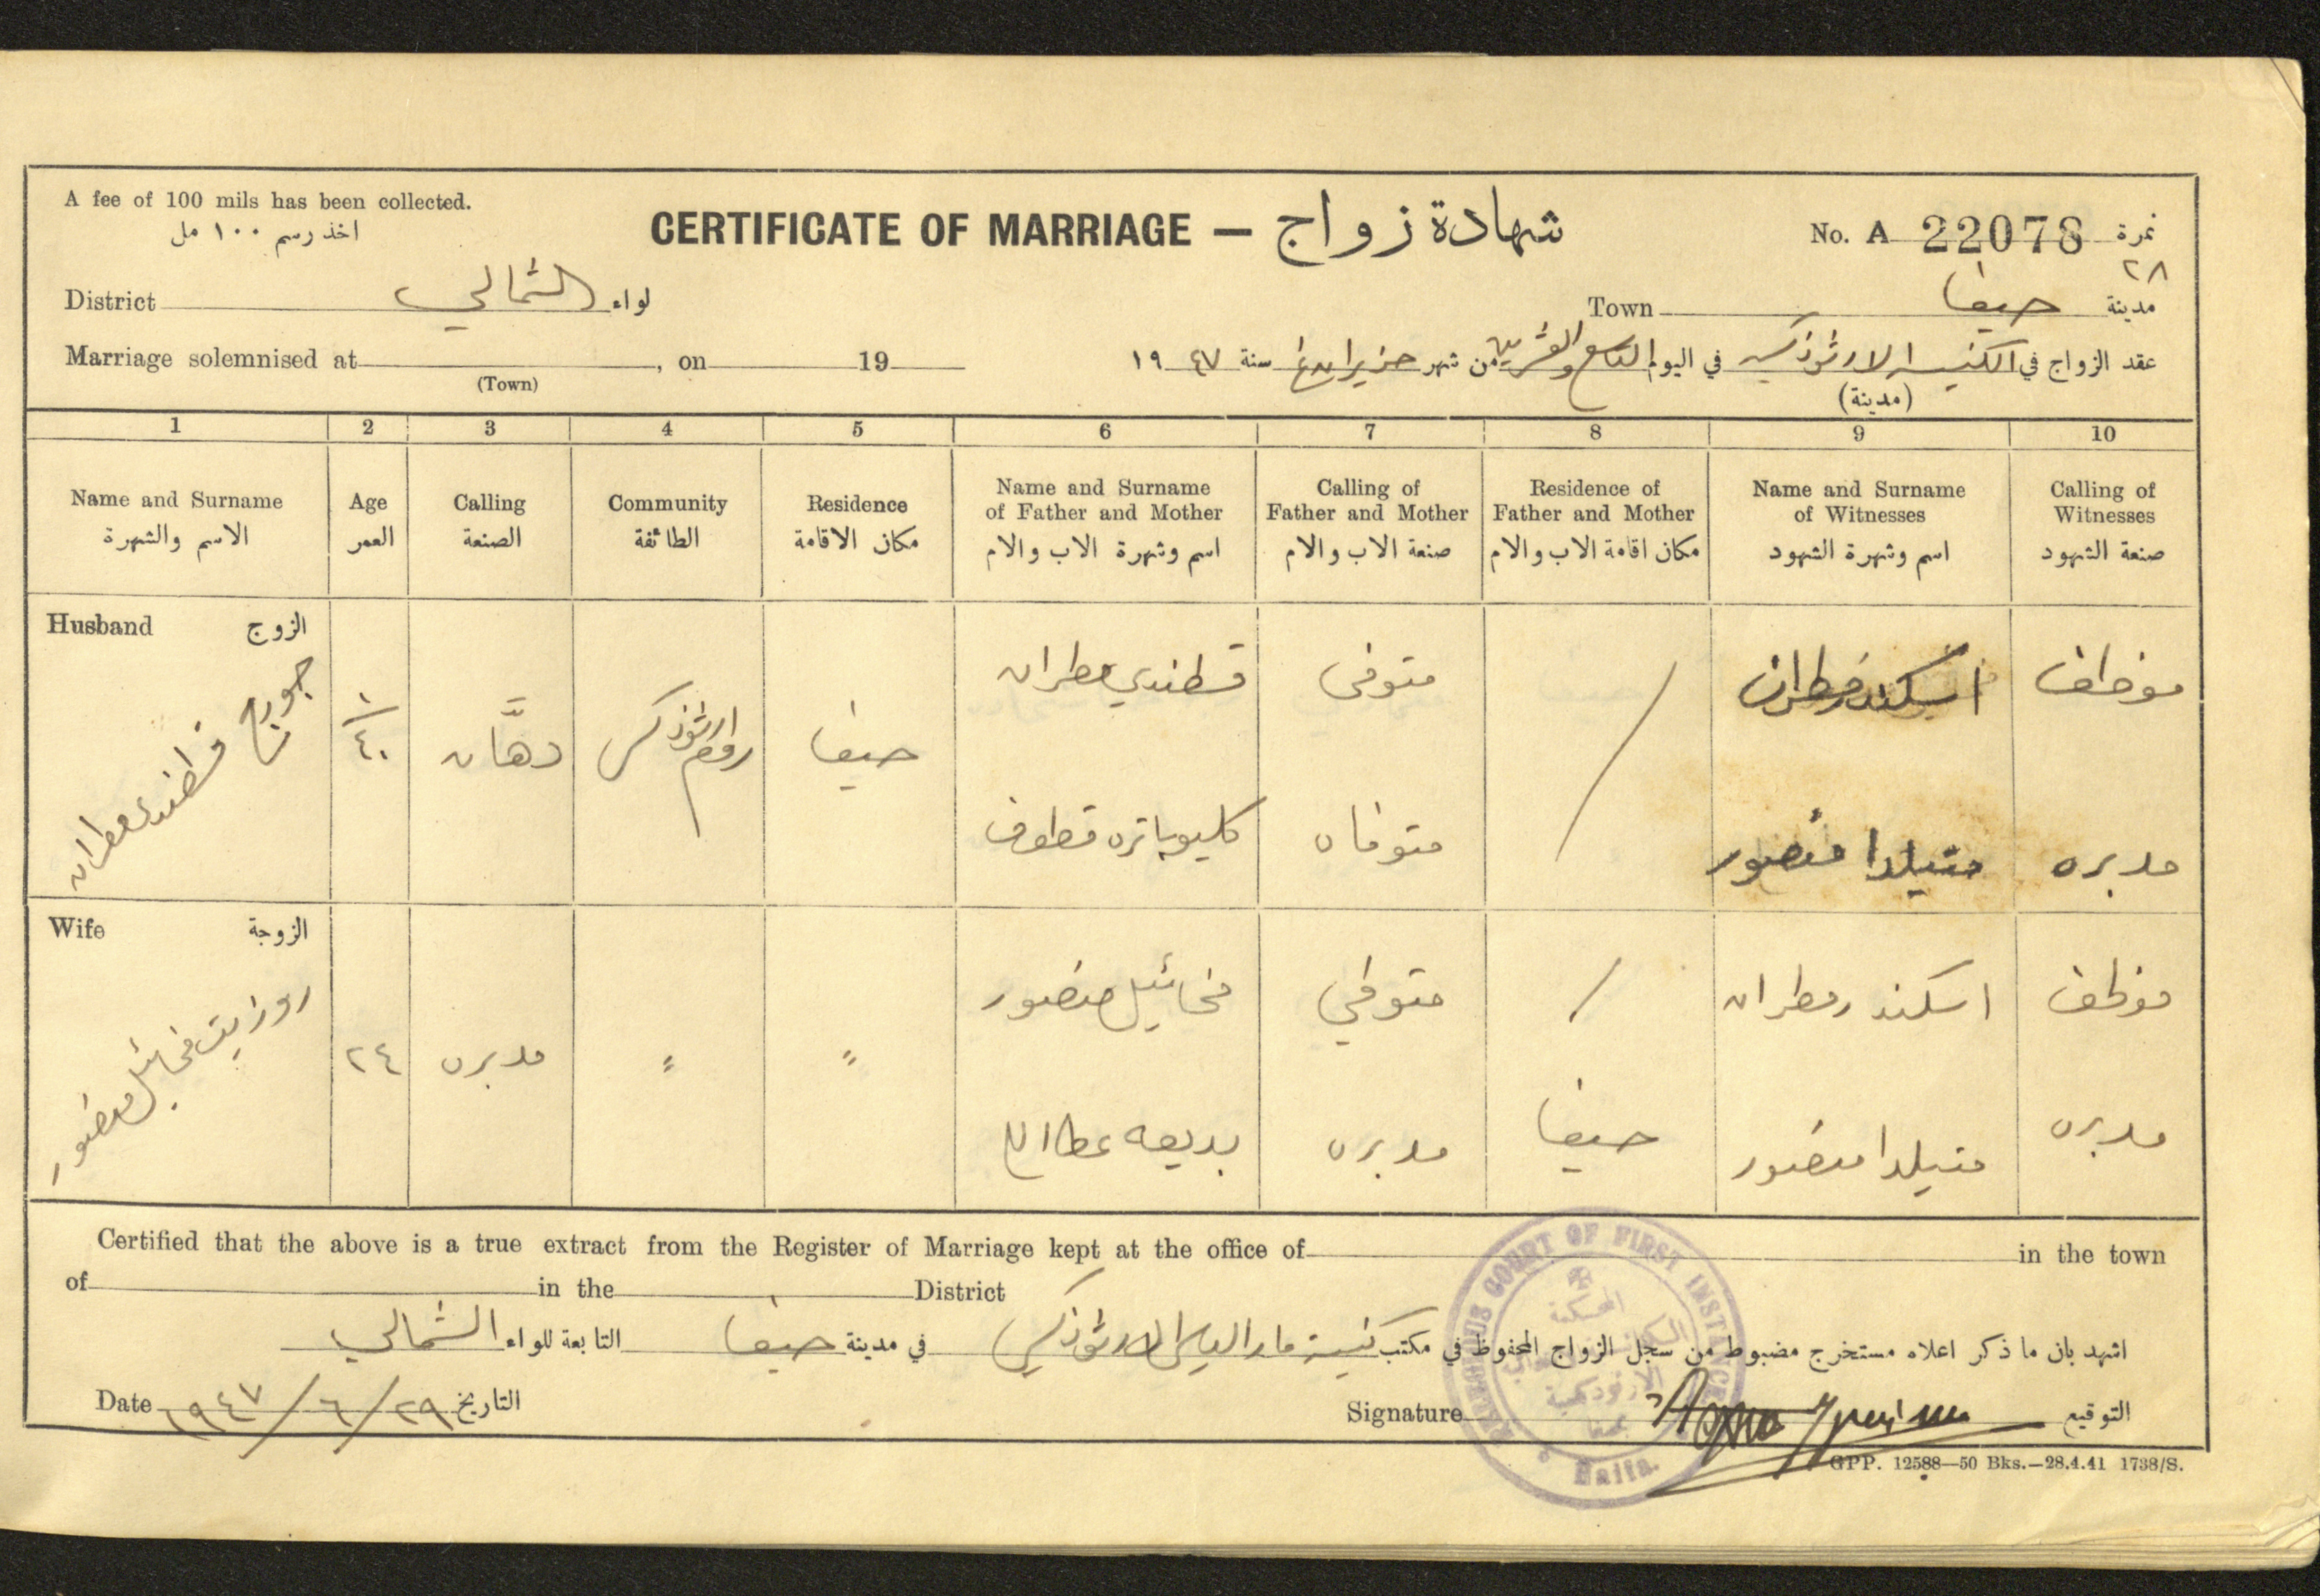 A fee of 100 mils has been collected.
اخذ رسم ١٠٠ مل
CERTIFICATE OF MARRIAGE — شهادة زواج
No. A 22078 نمرة
٢٨
District الشمالي لواء
Town حيفا مدينة
Marriage solemnised at , on 19
(Town)
عقد الزواج في الكنيسة الارثوذكسية في اليوم التاسع والعشرين من شهر حزيران سنة ١٩٤٧
(مدينة)
1 2 3 4 5 6 7 8 9 10
Name and Surname
الاسم والشهرة
Age
العمر
Calling
الصنعة
Community
الطائفة
Residence
مكان الاقامة
Name and Surname
of Father and Mother
اسم وشهرة الاب والام
Calling of
Father and Mother
صنعة الاب والام
Residence of
Father and Mother
مكان اقامة الاب والام
Name and Surname
of Witnesses
اسم وشهرة الشهود
Calling of
Witnesses
صنعة الشهود
Husband الزوج
جورج قسطندي مطران
٤٠
دهّان
روم ارثوذكس
حيفا
قسطندي مطران
متوفى
اسكندر مطران
موظف
كليوباتره قطوف
متوفاه
متيلدا منصور
مدبره
Wife الزوجة
روزيت مخائيل منصور
٢٤
مدبره
〃
〃
مخائيل منصور
متوفي
اسكندر مطران
موظف
بديعه عطا الله
مدبره
حيفا
متيلدا منصور
مدبره
Certified that the above is a true extract from the Register of Marriage kept at the office of in the town
of in the District
اشهد بان ما ذكر اعلاه مستخرج مضبوط من سجل الزواج المحفوظ في مكتب كنيسة مار الياس الارثوذكسي في مدينة حيفا التابعة للواء الشمالي
Date ٢٩/٦/١٩٤٧ التاريخ
Signature التوقيع
RELIGIOUS COURT OF FIRST INSTANCE
المحكمة
الارثوذكسية
Haifa.
GPP. 12588—50 Bks.—28.4.41 1738/S.